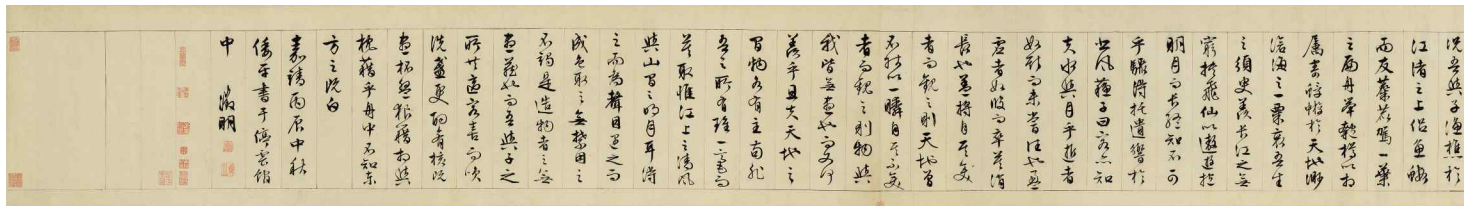 況吾與子漁樵於
江渚之上侶魚蝦
而友麋鹿駕一葉
之扁舟舉匏樽以相
屬寄蜉蝣於天地渺
滄海之一粟哀吾生
之須臾羨長江之無
窮挾飛仙以遨遊抱
明月而長終知不可
乎驟得托遺響於
悲風蘇子曰客亦知
夫水與月乎逝者
如斯而未嘗往也盈
虛者如彼而卒莫消
長也蓋將自其變
者而觀之則天地曾
不能以一瞬自其不變
者而觀之則物與
我皆無盡也而又何
羨乎且夫天地之
間物各有主苟非
吾之所有雖一毫而
莫取惟江上之清風
與山間之明月耳得
之而為聲目遇之而
成色取之無禁用之
不竭是造物者之無
盡藏也而吾與子之
所共適客喜而笑
洗盞更酌肴核既
盡杯盤狼藉相與
枕藉乎舟中不知東
方之既白
嘉靖丙辰中秋
倭平書于停雲館
中 徵明